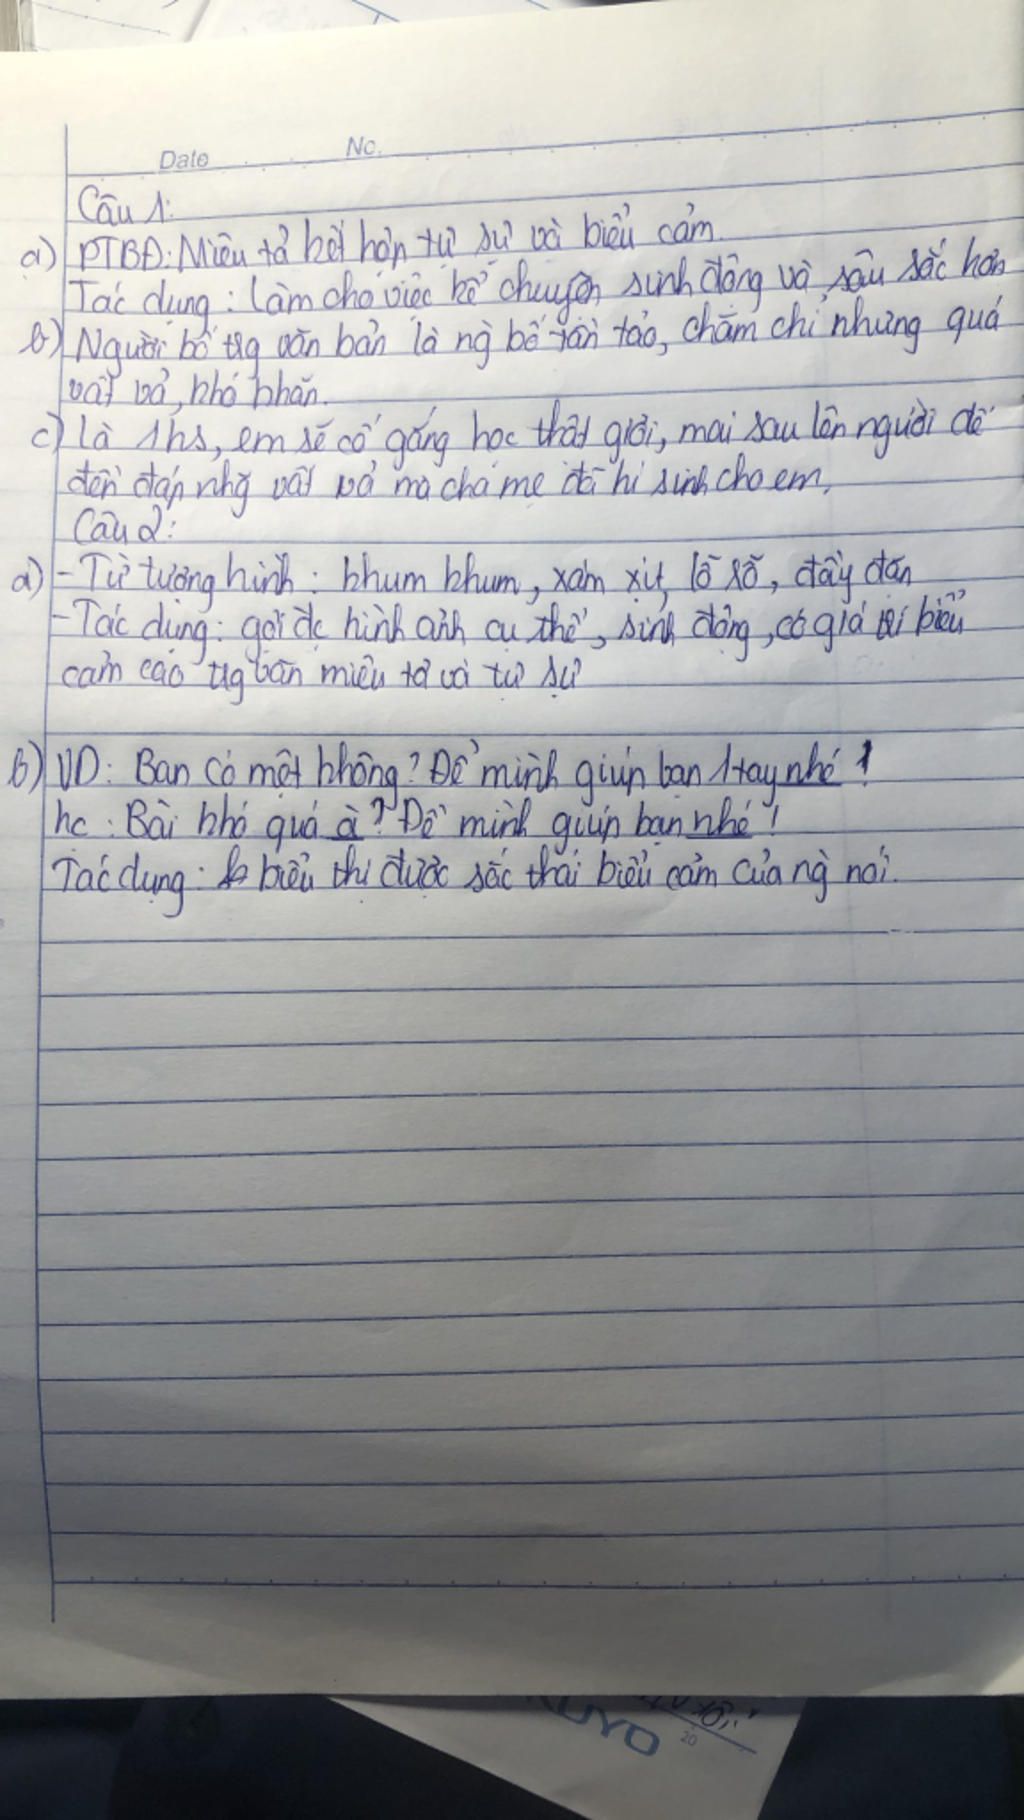 Date No.
Câu 1:
a) PTBĐ: Miêu tả kết hợp tự sự và biểu cảm.
Tác dụng: làm cho việc kể chuyện sinh động và sâu sắc hơn
b) Người bố tlg văn bản là ng` bố tần tảo, chăm chỉ nhưng quá
vất vả, khó khăn.
c) Là 1 hs, em sẽ cố gắng học thật giỏi, mai sau lên người để
đền đáp nhg~ vất vả mà cha mẹ đã hi sinh cho em.
Câu 2:
a) - Từ tượng hình: khum khum, xám xịt, lỗ xỗ, đầy đặn
- Tác dụng: gợi đc hình ảnh cụ thể, sinh động, có giá trị biểu
cảm cao tlg văn miêu tả và tự sự
b) VD: Bạn có mệt không? Để mình giúp bạn 1 tay nhé!
hc: Bài khó quá à? Để mình giúp bạn nhé!
Tác dụng: biểu thị được sắc thái biểu cảm của ng` nói.
KUYO
20